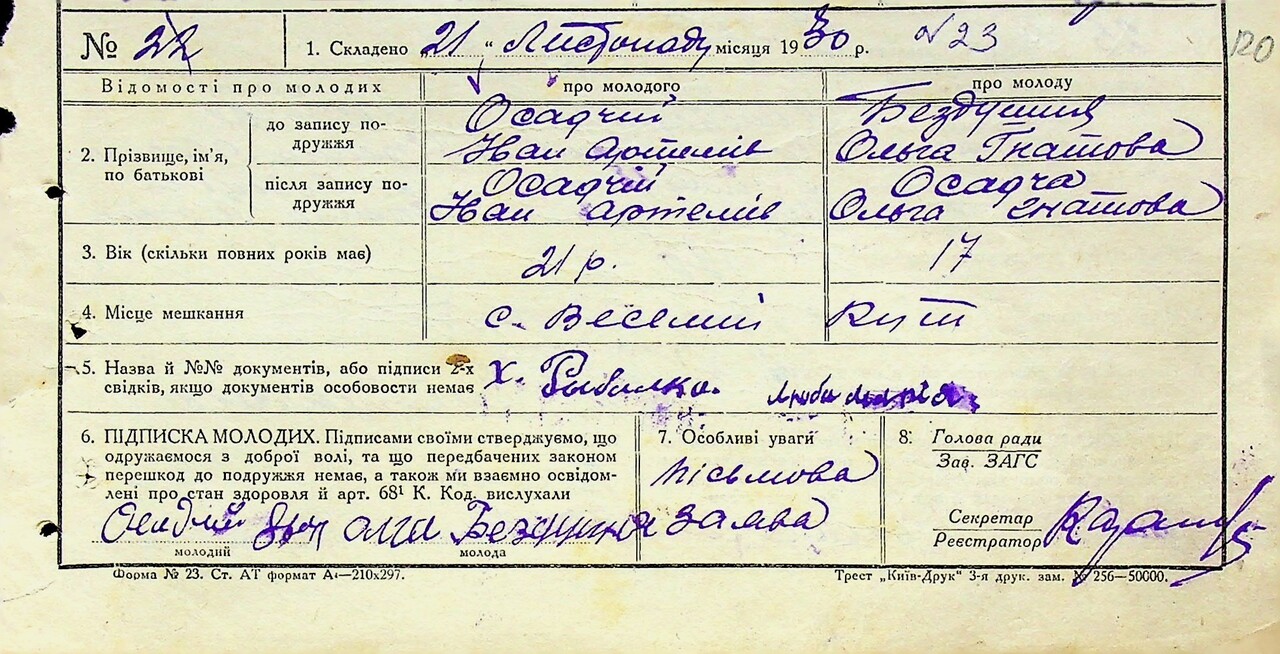 № 22 1. Складено 21 " Листопаду місяця 1930 р. №23 120
Відомості про молодих про молодого про молоду
2. Прізвище, ім'я, по батькові
до запису по-
дружжя
Осадчій
Іван Артемів
Бездушня
Ольга Гнатова
після запису по-
дружжя
Осадчій
Іван Артемів
Осадча
Ольга Гнатова
3. Вік (скільки повних років має) 21 р. 17
4. Місце мешкання с. Веселий Кут
5. Назва й №№ документів, або підписи 2-х
свідків, якщо документів особовости немає Х. Рыбалка.
6. ПІДПИСКА МОЛОДИХ. Підписами своїми стверджуємо, що
одружаємося з доброї волі, та що передбачених законом
перешкод до подружжя немає, а також ми взаємно освідом-
лені про стан здоров'я й арт. 68¹ К. Код. вислухали
Осадчий
молодий молода
7. Особливі уваги
пісьмова
заява
8. Голова ради
Зав. ЗАГС
Секретар
Реєстратор
Форма № 23. Ст. АТ формат А4—210x297. Трест „Київ-Друк" 3-я друк. зам. № 256—50000.